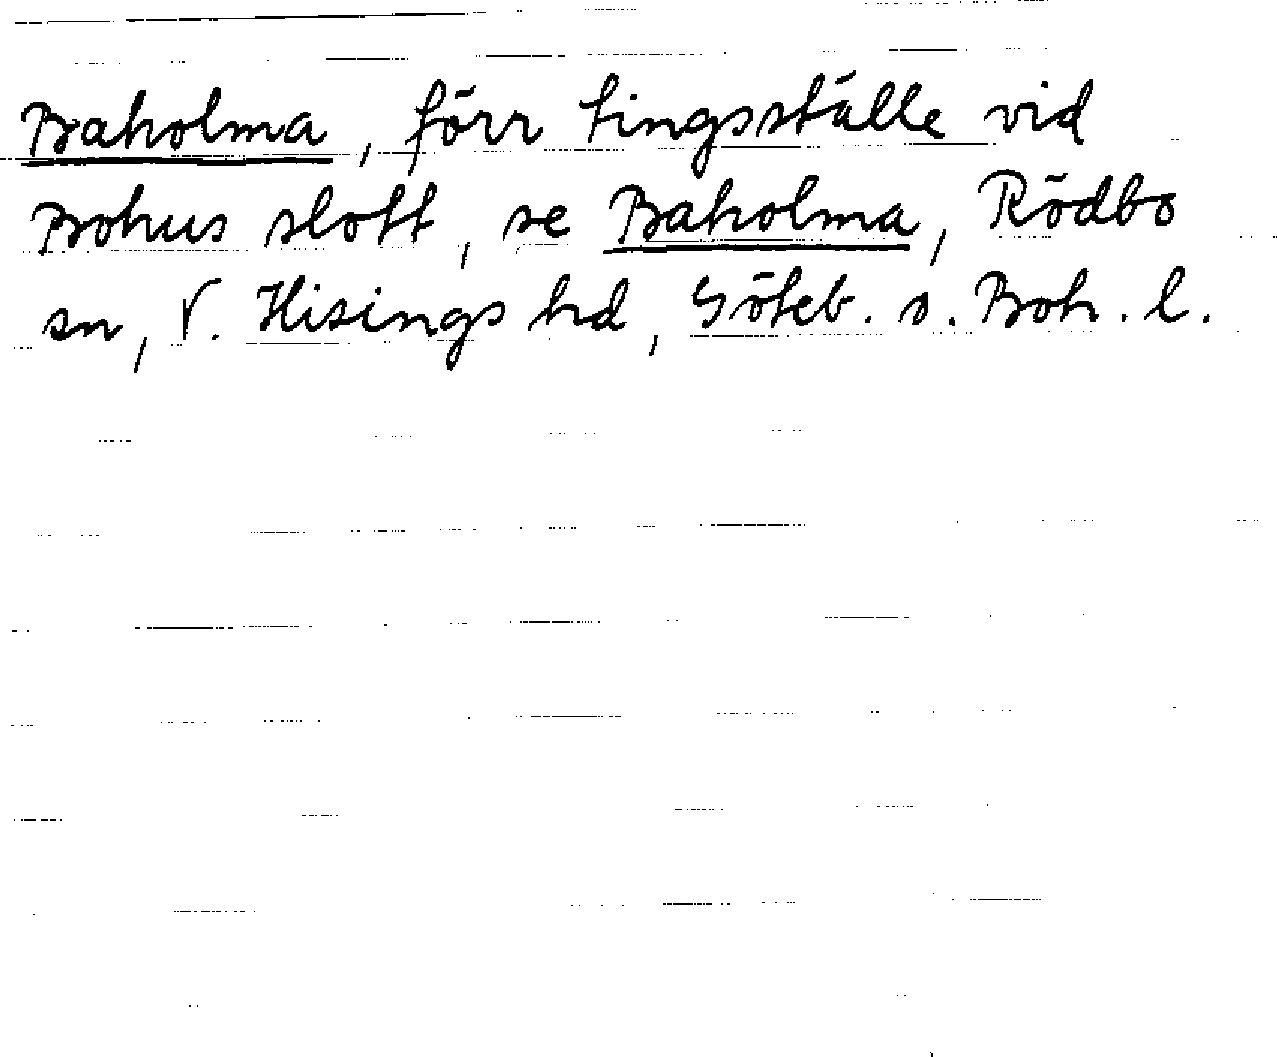 Baholma, förr tingsställe vid
Bohus slott, se Baholma, Rödbo
sn, V. Hisings hd, Göteb. o. Boh. l.